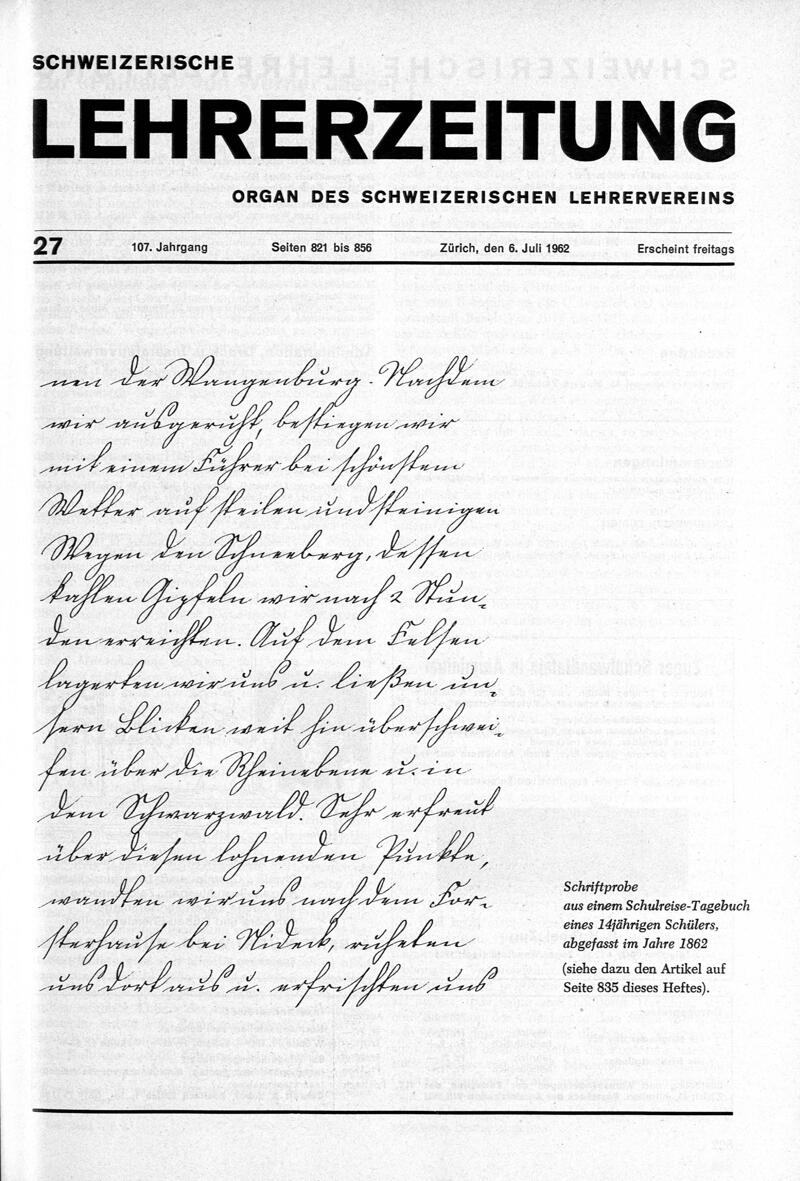 SCHWEIZERISCHE
LEHRERZEITUNG
ORGAN DES SCHWEIZERISCHEN LEHRERVEREINS
27 107. Jahrgang Seiten 821 bis 856 Zürich, den 6. Juli 1962 Erscheint freitags
nen der Wangenburg. Nachdem
wir ausgeruht, bestiegen wir
mit einem Führer bei schönstem
Wetter auf steilen und steinigen
Wegen den Schneeberg, dessen
kahlen Gipfeln wir nach 2 Stun-
den erreichten. Auf dem Felsen
lagerten wir uns u. ließen un-
sern Blicken weit hin überschwei-
fen über die Rheinebene u. in
dem Schwarzwald. Sehr erfreut
über diesen lohnenden Punkte,
wandten wir uns nach dem For-
sterhause bei Nideck, ruheten
uns dort aus u. erfrischten uns
Schriftprobe
aus einem Schulreise-Tagebuch
eines 14jährigen Schülers,
abgefasst im Jahre 1862
(siehe dazu den Artikel auf
Seite 835 dieses Heftes).